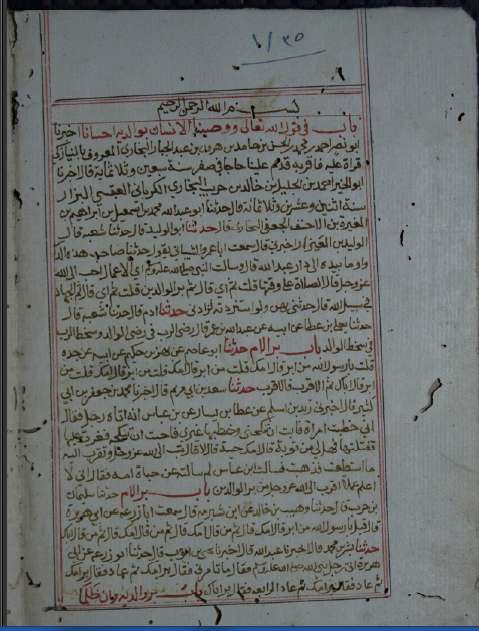 ١/٣٥
بسم الله الرحمن الرحيم
باب في قول الله تعالى ووصينا الانسان بوالديه احسانا اخبرنا
ابو نصر احمد بن محمد بن الحسن بن حامد بن هرون بن عبد الجبار البخاري المعروف بابن النيازكي
قراة عليه فاقر به قدم علينا حاجا في صفر سنة سبعين وثلاثمائة قال اخبرنا
ابو الخير احمد بن محمد بن الجليل بن خالد بن حريث البخاري الكرماني العبقسي البزار
سنة اثنتين وعشرين وثلاثمائة قال حدثنا ابو عبد الله محمد بن اسمعيل بن ابراهيم بن
المغيرة بن الاحنف الجعفي البخاري قال حدثنا ابو الوليد قال حدثنا شعبة قال
الوليد بن العيزار اخبرني قال سمعت ابا عمرو الشيباني يقول حدثنا صاحب هذه الدار
واوما بيده الى دار عبد الله قال سالت النبي صلى الله عليه وسلم اي الاعمال احب الى الله
عز وجل قال الصلاة على وقتها قلت ثم اي قال ثم بر الوالدين قلت ثم اي قال ثم الجهاد
في سبيل الله قال حدثني بهن ولو استزدته لزادني حدثنا ادم قال حدثنا شعبة قال
حدثنا يعلى بن عطا عن ابيه عن عبد الله بن عمر قال رضى الرب في رضى الوالد وسخط الرب
في سخط الوالد باب بر الام حدثنا ابو عاصم عن بهز بن حكيم عن ابيه عن جده
قلت يا رسول الله من ابر قال امك قلت من ابر قال امك قلت من ابر قال امك قلت من
ابر قال اباك ثم الاقرب فالاقرب حدثنا سعيد بن ابي مريم قال اخبرنا محمد بن جعفر بن ابي
كثير قال اخبرني زيد بن اسلم عن عطا بن يسار عن بن عباس انه اتاه رجل فقال
اني خطبت امراة فابت ان تنكحني وخطبها غيري فاحبت ان تنكحه فغرت عليها
فقتلتها فهل لي من توبة قال امك حية قال لا قال تب الى الله عز وجل وتقرب اليه
ما استطعت فذهبت فسالت ابن عباس لم سالته عن حياة امه فقال اني لا
اعلم عملا اقرب الى الله عز وجل من بر الوالدين باب بر الام حدثنا سليمان
بن حرب قال حدثنا وهيب بن خالد عن ابن شبرمة قال سمعت ابا زرعة عن ابي هريرة
قال قيل يا رسول الله من ابر قال امك قال ثم من قال امك قال ثم من قال امك قال ثم من قال اباك
حدثنا بشر بن محمد قال اخبرنا عبد الله قال اخبرنا يحيى بن ايوب قال حدثنا ابو زرعة عن ابي
هريرة اتى رجل نبي الله صلى الله عليه وسلم فقال ما تامرني فقال بر امك ثم عاد فقال بر امك
ثم عاد فقال بر امك ثم عاد الرابعة فقال بر اباك باب بر والديه وان ظلما